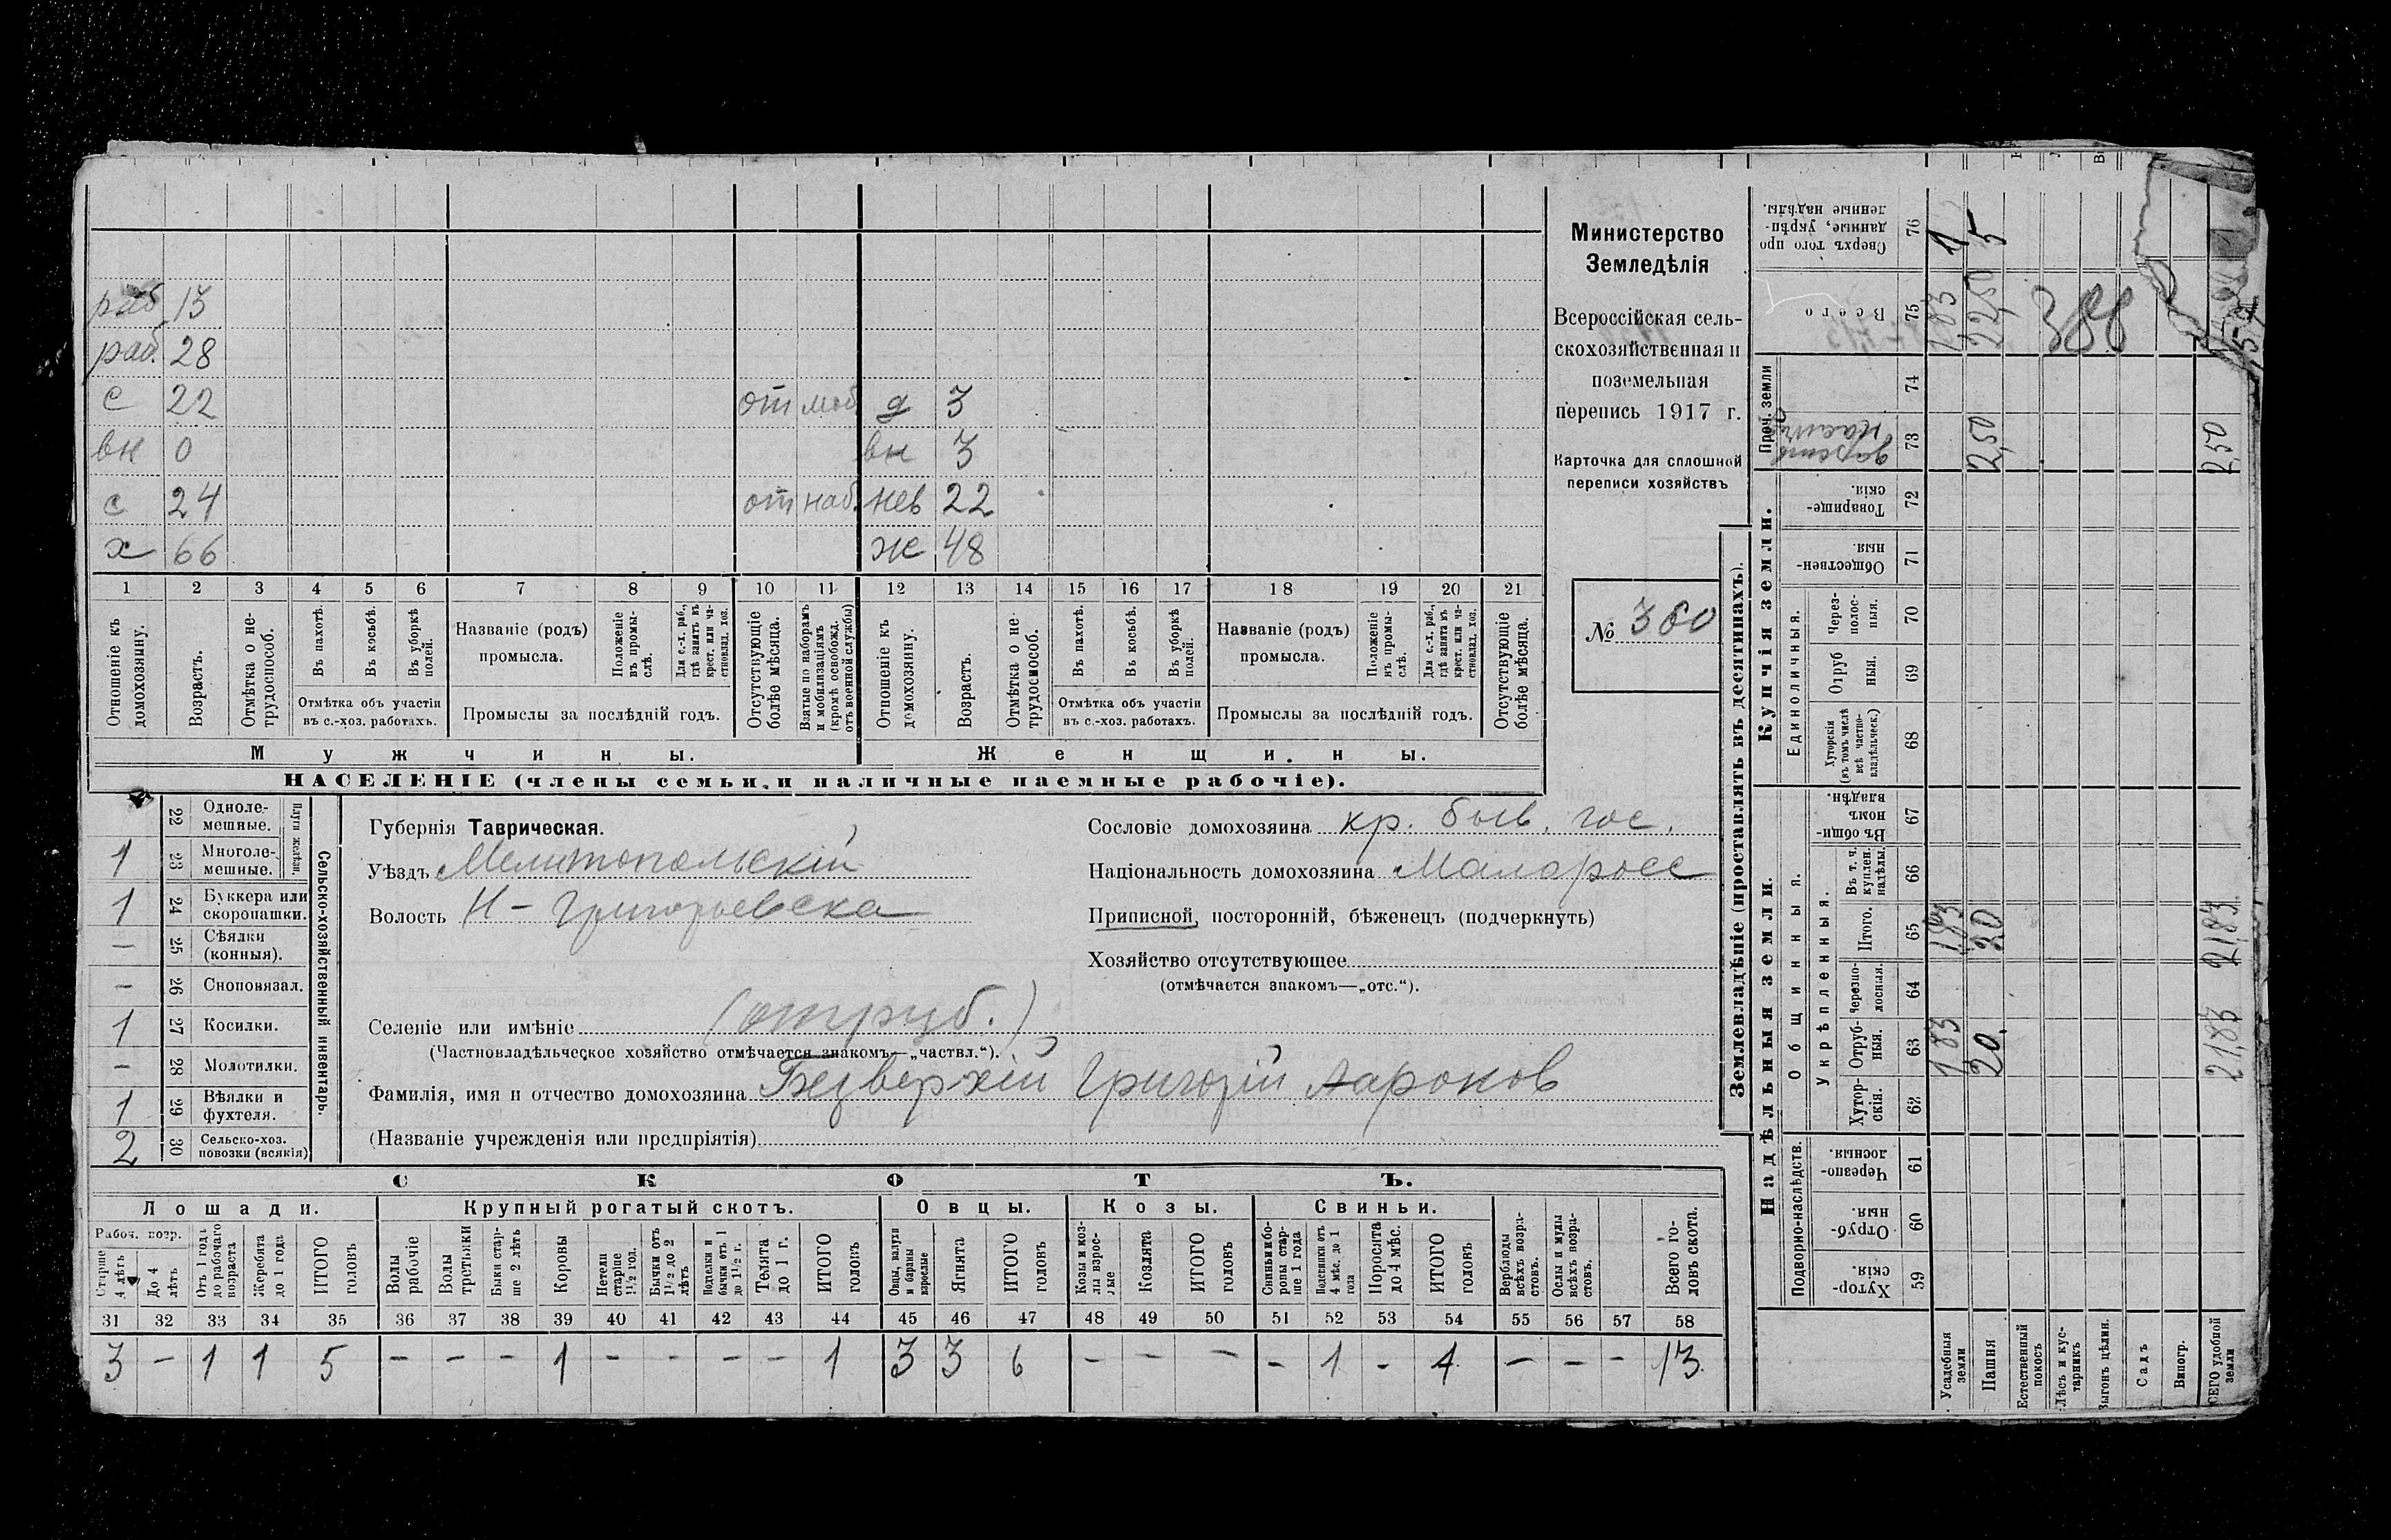 раб 13
раб. 28
с 22 от моб. д 3
вн 0 вн 3
с 24 от наб. нев 22
х 66 ж 48
1 2 3 4 5 6 7 8 9 10 11 12 13 14 15 16 17 18 19 20 21
Отношеніе къ домохозяину.
Возрастъ.
Отмѣтка о не-трудоспособ.
Въ пахотѣ.
Въ косьбѣ.
Въ уборкѣ полей.
Отмѣтка объ участіи въ с.-хоз. работахъ.
Названіе (родъ) промысла.
Положеніе въ промы-слѣ.
Для с.-х. раб., гдѣ занятъ въ крест. или ча-стновлад. хоз.
Промыслы за послѣдній годъ.
Отсутствующіе болѣе мѣсяца.
Взятые по наборамъ и мобилизаціямъ (кромѣ освобожд. отъ военной службы)
Отношеніе къ домохозяину.
Возрастъ.
Отмѣтка о не-трудоспособ.
Въ пахотѣ.
Въ косьбѣ.
Въ уборкѣ полей.
Отмѣтка объ участіи въ с.-хоз. работахъ.
Названіе (родъ) промысла.
Положеніе въ промы-слѣ.
Для с.-х. раб., гдѣ занятъ въ крест. или ча-стновлад. хоз.
Промыслы за послѣдній годъ.
Отсутствующіе болѣе мѣсяца.
Мужчины. Женщины.
НАСЕЛЕНІЕ (члены семьи и наличные наемные рабочіе).
Министерство
Земледѣлія
Всероссійская сель-
скохозяйственная и
поземельная
перепись 1917 г.
Карточка для сплошной
переписи хозяйствъ
№ 360
Сельско-хозяйственный инвентарь.
Плуги желѣзн.
22 Одноле-мешные.
1 23 Многоле-мешные.
1 24 Буккера или скоропашки.
— 25 Сѣялки (конныя).
— 26 Сноповязал.
1 27 Косилки.
— 28 Молотилки.
1 29 Вѣялки и фухтеля.
2 30 Сельско-хоз. повозки (всякія)
Губернія Таврическая.
Уѣздъ Мелитопольскій
Волость Н-Григорьевска
Сословіе домохозяина кр. быв. гос.
Національность домохозяина Малоросс
Приписной, посторонній, бѣженецъ (подчеркнуть)
Хозяйство отсутствующее
(отмѣчается знакомъ—„отс.“).
Селеніе или имѣніе (отруб.)
(Частновладѣльческое хозяйство отмѣчается знакомъ—„частвл.“).
Фамилія, имя и отчество домохозяина Безверхій Григорій
(Названіе учрежденія или предпріятія)
СКОТЪ.
Лошади. Крупный рогатый скотъ. Овцы. Козы. Свиньи.
Рабоч. возр.
Старше 4 лѣтъ
До 4 лѣтъ
Отъ 1 года до рабочаго возраста
Жеребята до 1 года
ИТОГО головъ
Волы рабочіе
Волы третьяки
Быки стар-ше 2 лѣтъ
Коровы
Нетели старше 1½ год.
Бычки отъ 1½ до 2 лѣтъ
Подтелки и бычки отъ 1 до 1½ г.
Телята до 1 г.
ИТОГО головъ
Овцы, валухи и бараны взрослые
Ягнята
ИТОГО головъ
Козы и коз-лы взрос-лые
Козлята
ИТОГО головъ
Свиньи и бо-ровы стар-ше 1 года
Подсвинки отъ 4 мѣс. до 1 года
Поросята до 4 мѣс.
ИТОГО головъ
Верблюды всѣхъ возра-стовъ.
Ослы и мулы всѣхъ возра-стовъ.
Всего го-ловъ скота.
31 32 33 34 35 36 37 38 39 40 41 42 43 44 45 46 47 48 49 50 51 52 53 54 55 56 57 58
3 — 1 1 5 — — — 1 — — — — 1 3 3 6 — — — — 1 — 1 — — — 13
Землевладѣніе (проставлять въ десятинахъ).
Надѣльныя земли. Купчія земли.
Проч. земли
Подворно-наслѣдств.
Общинныя.
Укрѣпленныя.
Единоличныя.
Сверхъ того про данные, укрѣп-ленные надѣлы. 76 1 5
Всего 75 1,83 22,50 388
74
73 2,50 2,50
Товарище-скія. 72
Обществен-ныя. 71
Через-полос-ныя. 70
Отруб ныя. 69
Хуторскія (въ томъ числѣ всѣ частно-владѣльческ.) 68
Въ общин-номъ владѣн. 67
Въ т. ч. куплен. надѣлы. 66
Итого. 65 1,83 20 21,83
Черезпо-лосныя. 64
Отруб-ныя. 63 1,83 20. 21,83
Хутор-скія. 62
Черезпо-лосныя. 61
Отруб-ныя. 60
Хутор-скія. 59
Усадебныя земли
Пашня
Естественный покосъ
Лѣсъ и кус-тарникъ
Выгонъ цѣлин.
Садъ
Виногр.
ВСЕГО удобной земли